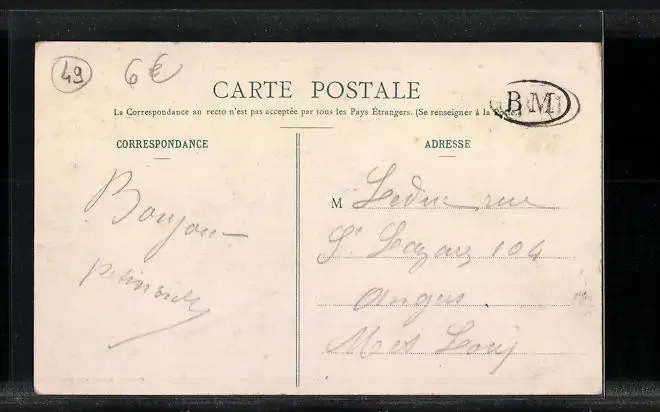 49 6€
CARTE POSTALE
BM
La Correspondance au recto n'est pas acceptée par tous les Pays Étrangers. (Se renseigner à la Poste.)
CORRESPONDANCE
Bonjou
ADRESSE
M Leduc rue
St Lazare 104
Angers
M et Loire